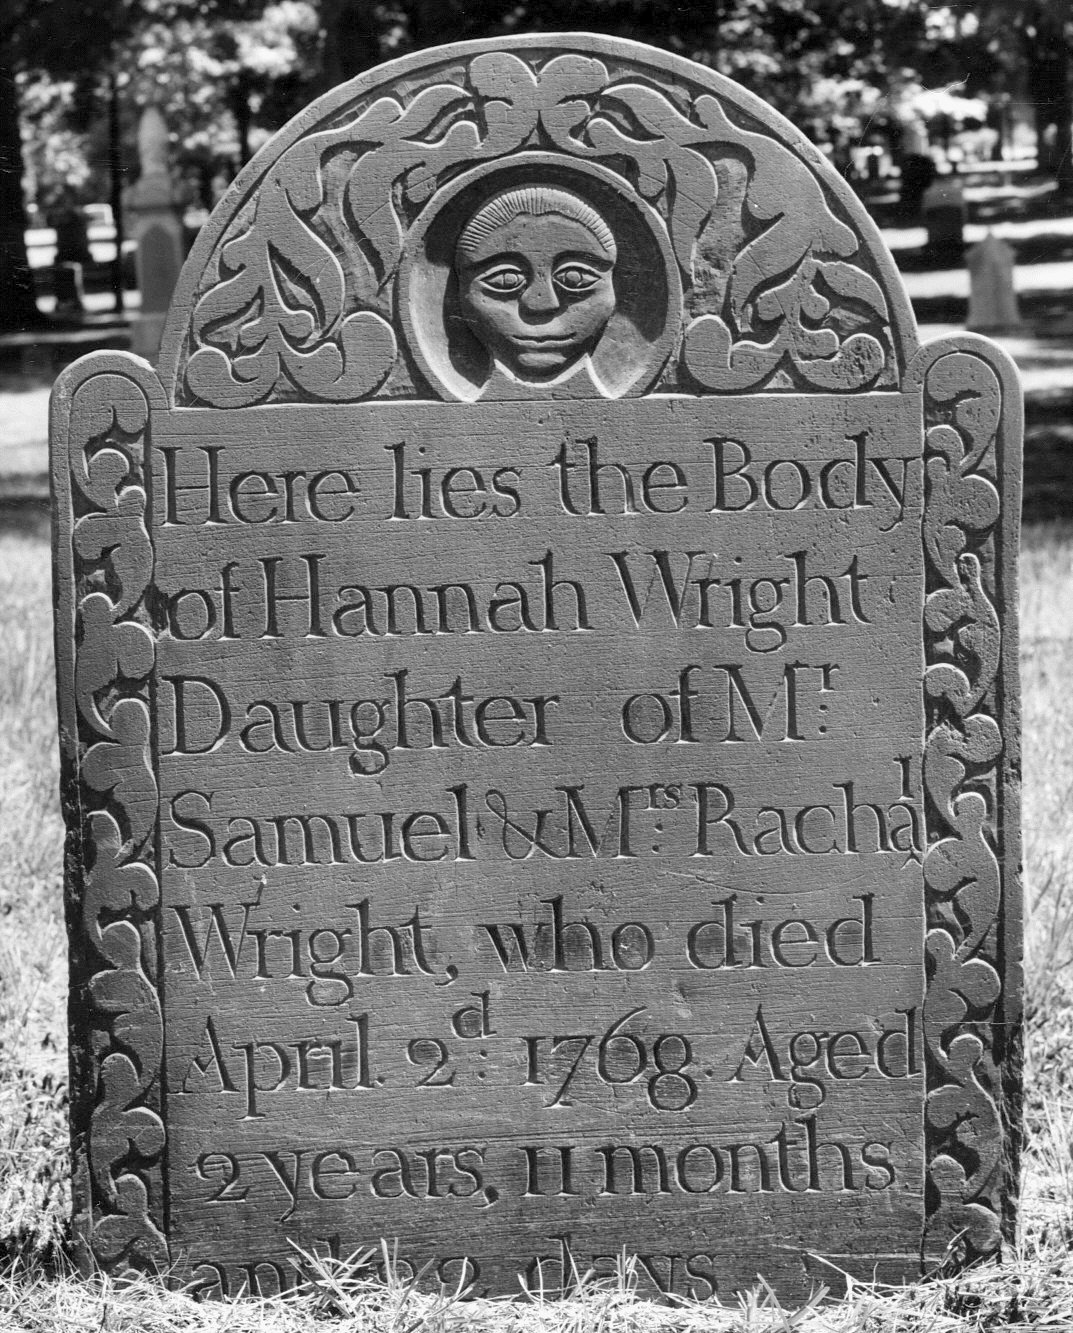 Here lies the Body
of Hannah Wright
Daughter of Mr.
Samuel & Mrs. Rachal
Wright, who died
April 2d. 1768. Aged
2 years, 11 months
and 2 days